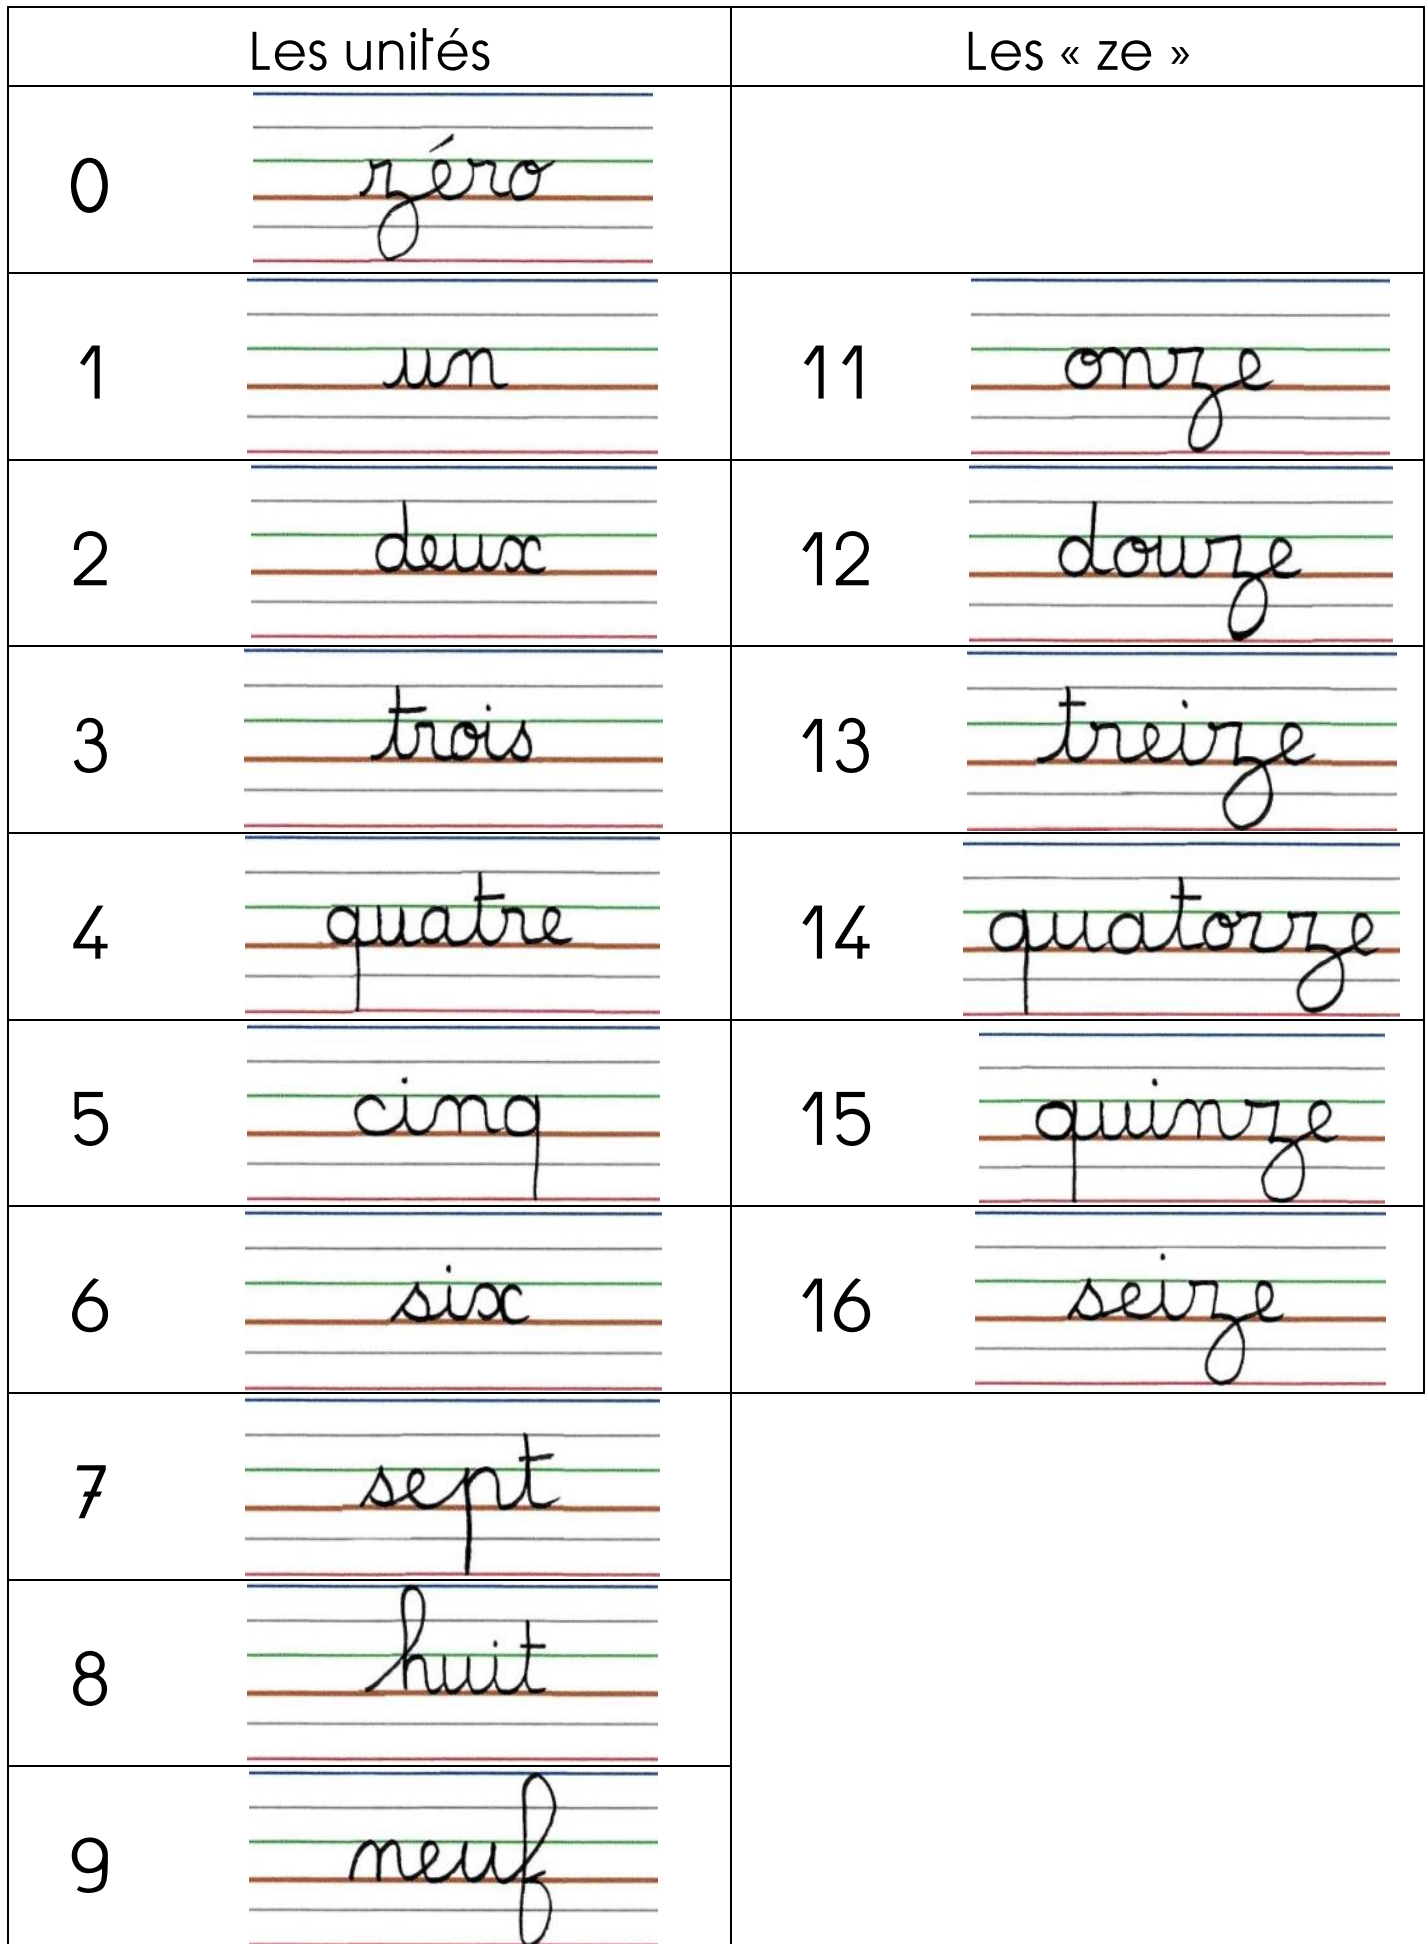 Les unités Les « ze »
0 zéro
1 un 11 onze
2 deux 12 douze
3 trois 13 treize
4 quatre 14 quatorze
5 cinq 15 quinze
6 six 16 seize
7 sept
8 huit
9 neuf